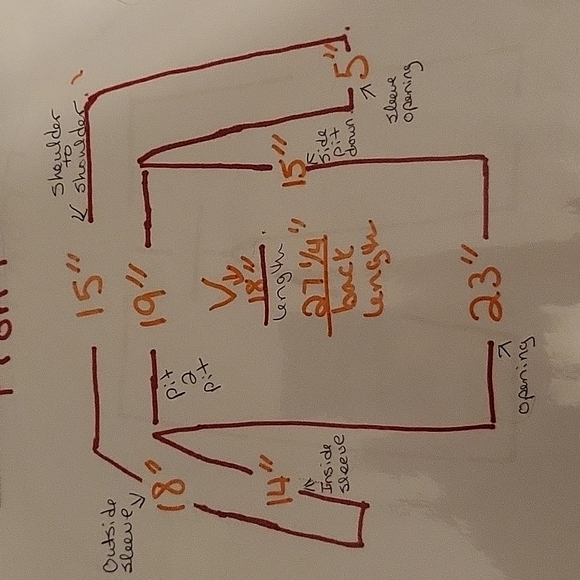 Shoulder
to
Shoulder
15"
Outside
sleeve
18"
19"
pit
2
pit
V
18"
length
27 1/4"
back
length
14"
Inside
sleeve
15"
side
pit
down
5"
sleeve
opening
23"
opening